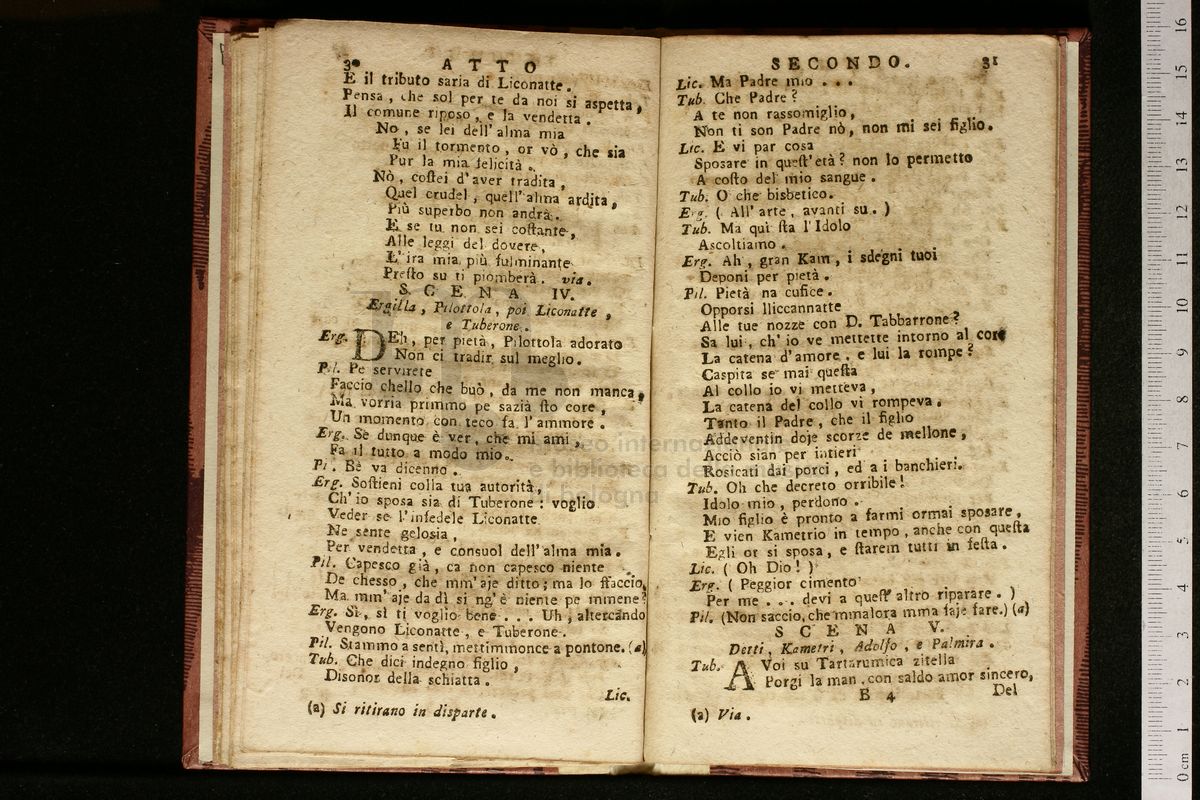 30 ATTO
E il tributo saria di Liconatte.
Pensa, che sol per te da noi si aspetta,
Il comune riposo, e la vendetta.
No, se lei dell' alma mia
Fu il tormento, or vò, che sia
Pur la mia felicità.
Nò, coſtei d'aver tradita,
Quel crudel, quell' alma ardita,
Più superbo non andrà.
E se tu non sei coſtante,
Alle leggi del dovere,
L' ira mia più fulminante
Preſto su ti piomberà. via.
SCENA IV.
Ergilla, Pilottola, poi Liconatte,
e Tuberone.
Erg. DEh, per pietà, Pilottola adorato
Non ci tradir sul meglio.
Pil. Pe servirete
Faccio chello che buò, da me non manca,
Ma vorria primmo pe sazià ſto core,
Un momento con teco fa l' ammore.
Erg. Se dunque è ver, che mi ami,
Fa il tutto a modo mio.
Pi. Bè va dicenno.
Erg. Soſtieni colla tua autorità,
Ch' io sposa sia di Tuberone: voglio
Veder se l'infedele Liconatte
Ne sente gelosia,
Per vendetta, e consuol dell' alma mia.
Pil. Capesco già, ca non capesco niente
De chesso, che mm'aje ditto; ma lo ſfaccio,
Ma mm'aje da dì si ng'è niente pe mmene?
Erg. Sì, sì ti voglio bene... Uh, altercando
Vengono Liconatte, e Tuberone.
Pil. Stammo a sentì, mettimmonce a pontone. (a)
Tub. Che dici indegno figlio,
Disonor della schiatta.
Lic.
(a) Si ritirano in disparte.
SECONDO. 31
Lic. Ma Padre mio...
Tub. Che Padre?
A te non rassomiglio,
Non ti son Padre nò, non mi sei figlio.
Lic. E vi par cosa
Sposare in queſt'età? non lo permetto
A coſto del mio sangue.
Tub. O che bisbetico.
Erg. (All' arte, avanti su.)
Tub. Ma quì ſta l'Idolo
Ascoltiamo.
Erg. Ah, gran Kam, i sdegni tuoi
Deponi per pietà.
Pil. Pietà na cufice.
Opporsi lliccannatte
Alle tue nozze con D. Tabbarrone?
Sa lui, ch' io ve mettette intorno al core
La catena d'amore, e lui la rompe?
Caspita se mai queſta
Al collo io vi metteva,
La catena del collo vi rompeva.
Tanto il Padre, che il figlio
Addeventin doje scorze de mellone,
Acciò sian per intieri
Rosicati dai porci, ed a i banchieri.
Tub. Oh che decreto orribile!
Idolo mio, perdono.
Mio figlio è pronto a farmi ormai sposare,
E vien Kametrio in tempo, anche con queſta
Egli or si sposa, e ſtarem tutti in feſta.
Lic. (Oh Dio!)
Erg. (Peggior cimento
Per me... devi a queſt' altro riparare.)
Pil. (Non saccio, che mmalora mma faje fare.) (a)
SCENA V.
Detti, Kametri, Adolfo, e Palmira.
Tub. A Voi su Tartarumica zitella
Porgi la man, con saldo amor sincero,
B 4 Del
(a) Via.
museo internazionale
e biblioteca della musica
di bologna